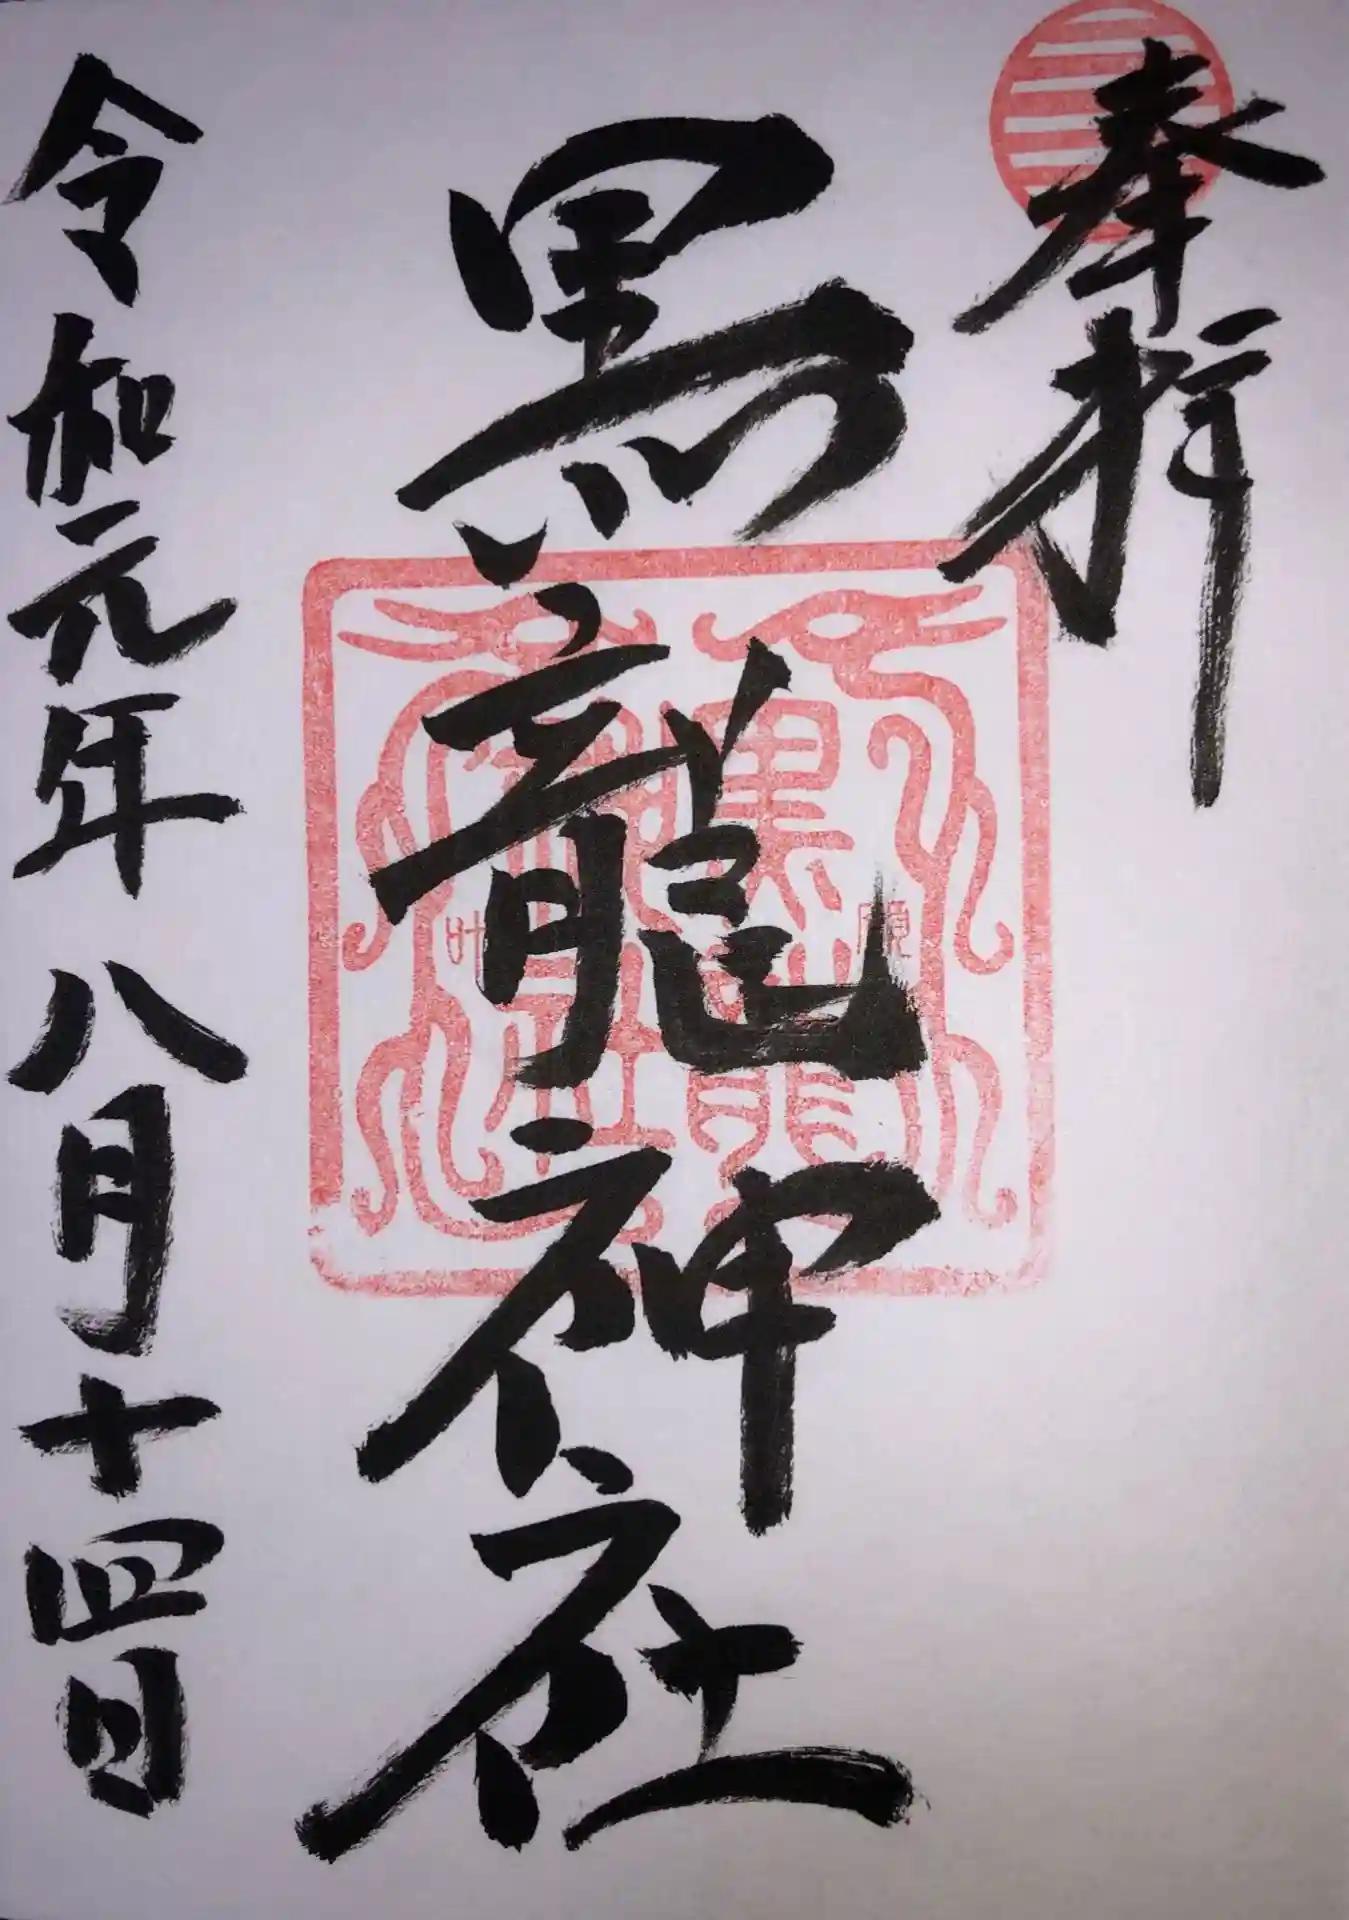 奉拝
黒龍神社
令和元年 八月十四日